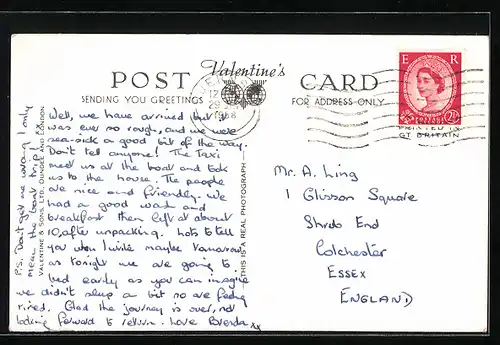 POST
Valentine's
CARD
SENDING YOU GREETINGS
FOR ADDRESS ONLY
E R
PRINTED IN
GT BRITAIN
Well, we have arrived but it
was ever so rough, and we were
sea-sick a good bit of the way.
Don't tell anyone! The taxi
met us at the boat and took
us to the house. The people
are nice and friendly. We
had a good wash and
breakfast then left at about
10, after unpacking. Lots to tell
you when I write maybe tomorrow
as tonight we are going to
bed early as you can imagine
we didn't sleep a bit so are feeling
tired. Glad the journey is over, not
looking forward to return. Love Brenda xx
P.S. Don't get me wrong I only
mean the boat trip
VALENTINE & SONS, LTD., DUNDEE AND LONDON
THIS IS A REAL PHOTOGRAPH
Mr. A. Ling
1 Glisson Square
Shrub End
Colchester
ESSEX
ENGLAND